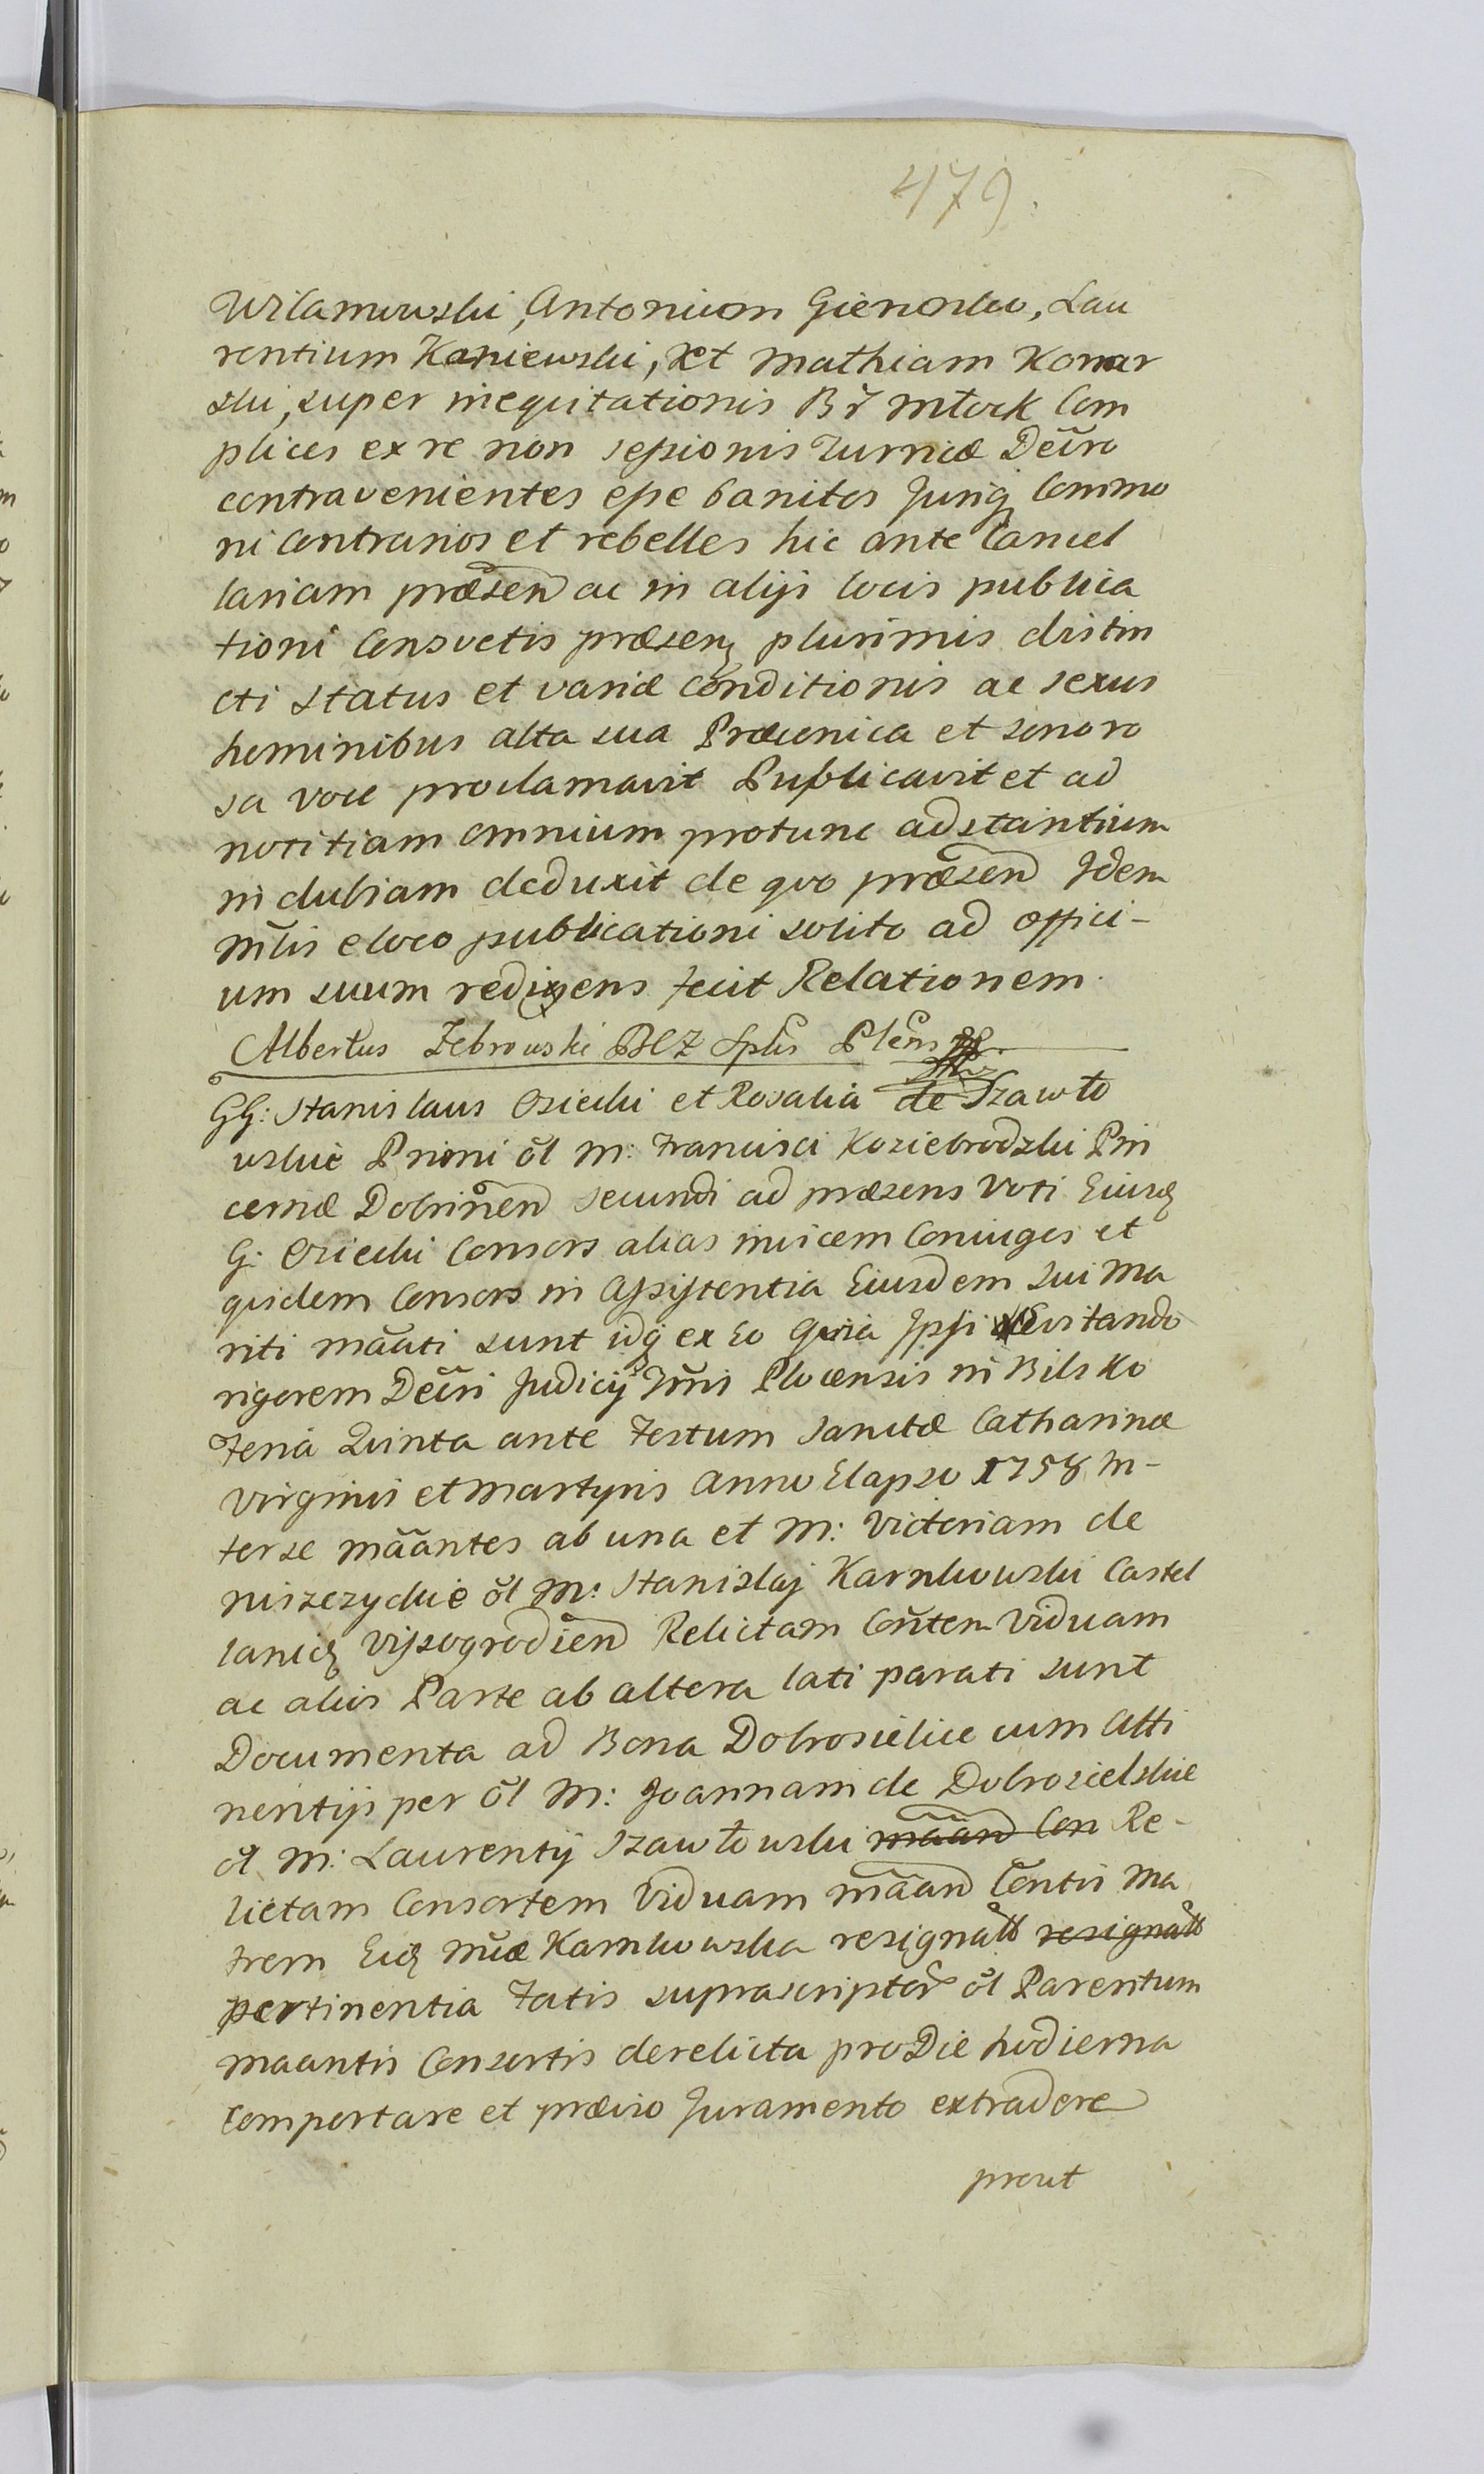 479.
Wilamowski, Antonium Gienonko, Lau
rentium Kaniewski, et Mathiam Konar
ski, super inequitationis Br̃ Młock Com
plices ex re non sessionis Turricæ Decr̃o
contravenientes esse banitos Juriq Commu
ni contrarios et rebelles hic ante Cancel
lariam præsen̄ ac in alijs locis publica
tioni Consvetis præsenʒ plurimis distin
cti status et variæ conditionis ac sexus
hominibus alta sua Præconica et sonoro
sa voce proclamavit Publicavit et ad
notitiam omnium protunc adstantium
indubiam deduxit de qvo præsen̄ Idem
Mlis e loco publicationi solito ad offici-
um suum rediens fecit Relationem.
Albertus Zebrowski BCZ Spls Plens
GG: Stanislaus Osiecki et Rosalia de Szawło
wskie Primi ol M: Francisci Koziebrodzki Pin
cernæ Dobrinen̄ secundi ad præsens Voti Eiusd
G: Osiecki Consors alias invicem Coniuges et
qvidem Consors in Assistentia Eiusdem sui Ma
riti māati sunt idq ex eo Qvia Ipsi Evitando
rigorem Decr̃i Judicij Tr̃ris Plocensis in Bilsko
Feria Qvinta ante Festum Sanctæ Catharinæ
Virginis et Martyris Anno Elapso 1758 In-
ter se māantes ab una et M: Victoriam de
Niszczyckie ol M: Stanislaj Karnkowski Castel
lanid Vissogrodien̄ Relictam Cōntem Viduam
ac alios Parte ab altera lati parati sunt
Documenta ad Bona Dobrosielice cum Atti
nentijs per ol M: Joannam de Dobrosielskie
ol M: Laurentij Szawłowski māan̄ Con Re-
lictam Consortem Viduam māan̄ Cōntis Ma
trem Eid Mcæ Karnkowska resignatt resignatt
pertinentia Fatis suprascriptor ol Parentum
maantis Consortis derelicta pro Die hodierna
Comportare et prævio Juramento extradere
prout